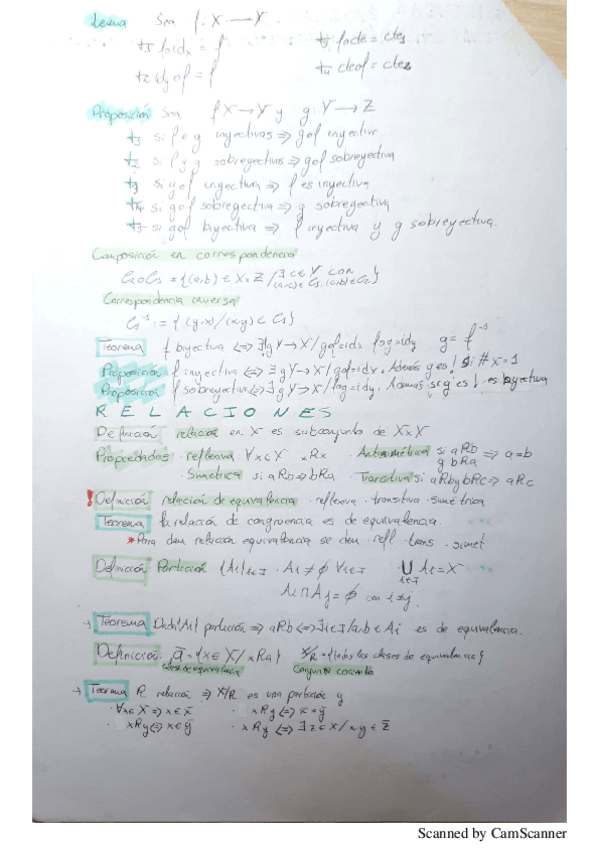 Lema Sea f: X → Y
t1 f∘id_x = f t3 f∘cte = cte
t2 id_y∘f = f t4 cte∘f = cte
Proposición Sea f X → Y y g: Y → Z
t1 si f e g inyectivas ⇒ g∘f inyectiva
t2 si f y g sobreyectivas ⇒ g∘f sobreyectiva
t3 si g∘f inyectiva ⇒ f es inyectiva
t4 si g∘f sobreyectiva ⇒ g sobreyectiva
t5 si g∘f biyectiva ⇒ f inyectiva y g sobreyectiva.
Composición en correspondencia
C2∘C1 = {(a,b) ∈ X×Z / ∃ c ∈ Y con (a,c) ∈ C1, (c,b) ∈ C2}
Correspondencia inversa
Teorema f biyectiva ⇔ ∃! g Y → X / g∘f=id_x f∘g=id_y g = f⁻¹
Proposición f inyectiva ⇔ ∃ g Y → X / g∘f=id_x. Además g es ! si #X=1
Proposición f sobreyectiva ⇔ ∃ g Y → X / f∘g=id_y. Además si g es ! es biyectiva
RELACIONES
Definición relación en X es subconjunto de X×X
Propiedades · reflexiva ∀x∈X xRx · Antisimétrica si aRb y bRa ⇒ a=b
· Simétrica si aRb ⇔ bRa · Transitiva si aRb y bRc ⇒ aRc
! Definición relación de equivalencia · reflexiva · transitiva · simétrica
Teorema la relación de congruencia es de equivalencia.
* Para dem relación equivalencia se dem · refl · trans · simet
Definición Partición {Ai}i∈I · Ai ≠ ∅ ∀i∈I ⋃ i∈I Ai = X
Ai ∩ Aj = ∅ con i≠j
→ Teorema Dada {Ai} partición ⇒ aRb ⇔ ∃i∈I / a,b ∈ Ai es de equivalencia.
Definición · ā = {x∈X / xRa} X/R = {todas las clases de equivalencia}
clase de equivalencia Conjunto cociente
→ Teorema R relación ⇒ X/R es una partición y
· ∀x∈X ⇒ x∈x̄ · xRy ⇔ x̄=ȳ
· xRy ⇔ x∈ȳ · xRy ⇔ ∃ z∈X / x,y ∈ z̄
Scanned by CamScanner